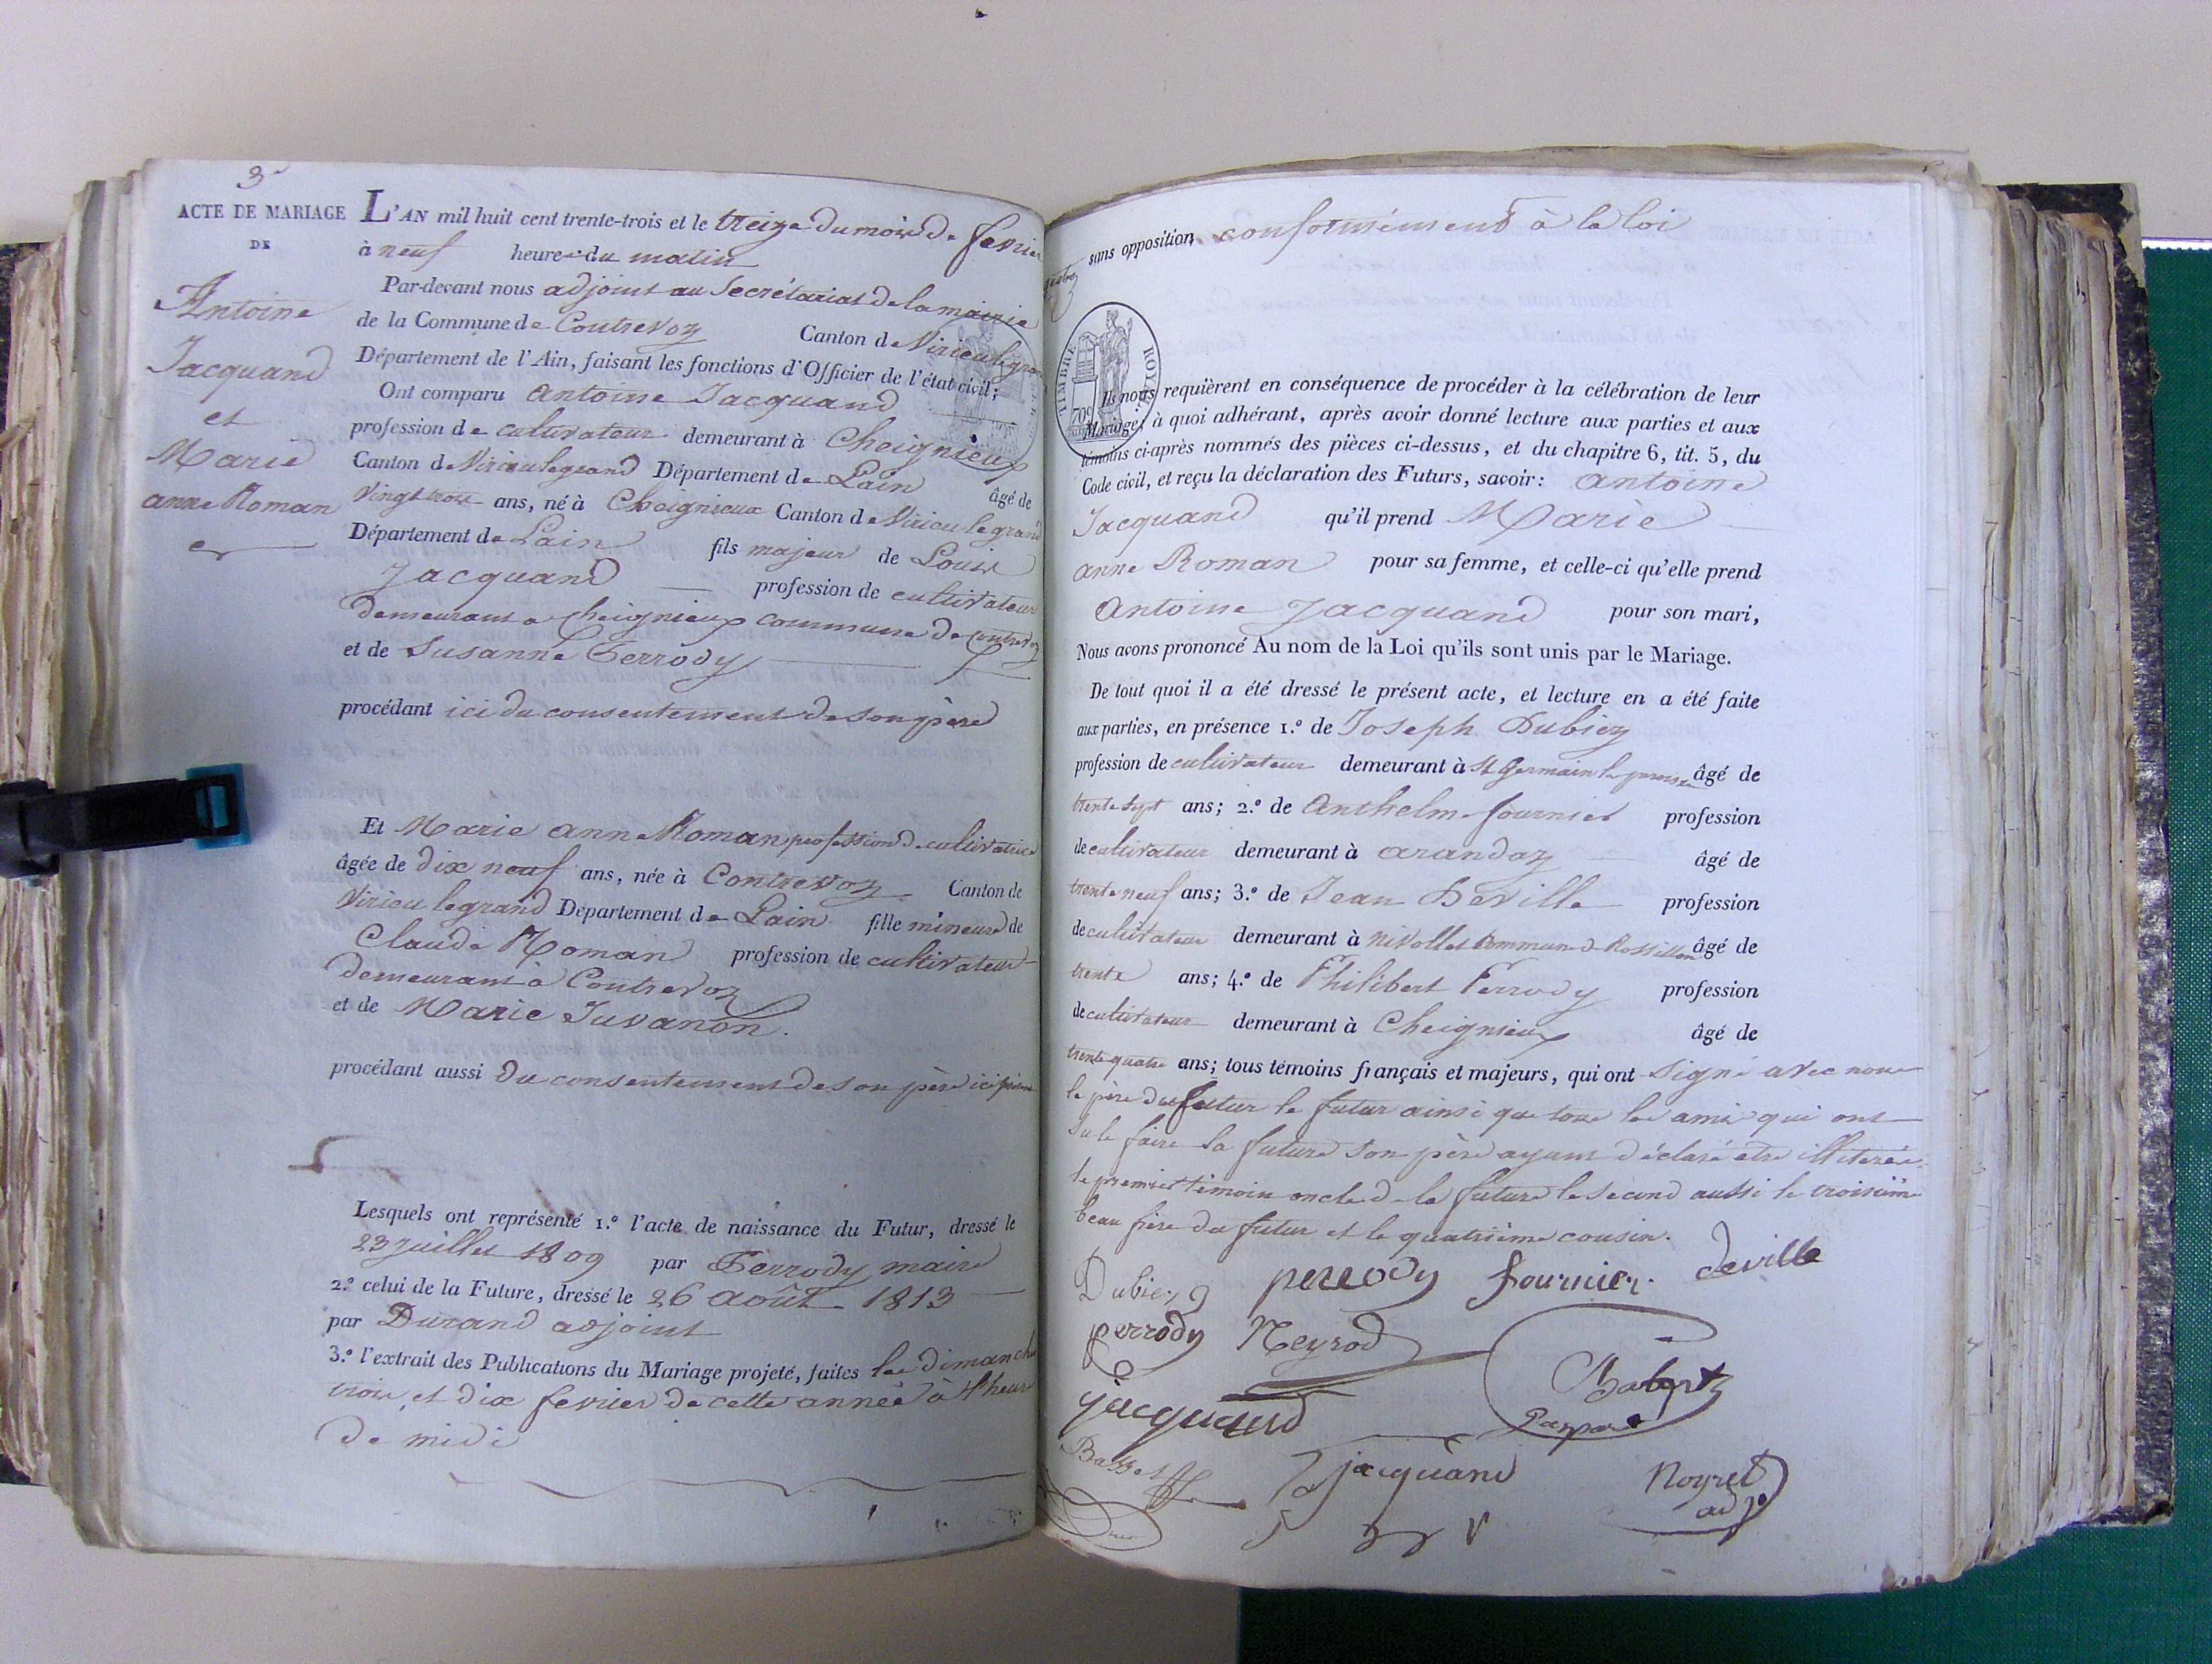 3
ACTE DE MARIAGE
DE
Antoine
Jacquand
et
Marie
anne Roman
L'AN mil huit cent trente-trois et le treize du mois de fevrier
à neuf heures du matin
Par-devant nous adjoint au Secrétariat de la mairie
de la Commune de Contrevoz Canton de Virieu legrand
Département de l'Ain, faisant les fonctions d'Officier de l'état civil;
Ont comparu Antoine Jacquand
profession de cultivateur demeurant à Cheignieux
Canton de Virieu legrand Département de Lain âgé de
vingt trois ans, né à Cheignieux Canton de Virieu le grand
Département de Lain fils majeur de Louis
Jacquand profession de cultivateur
demeurant a cheignieux commune de Contrevoz
et de Susanne Perrody
procédant ici du consentement de son père
Et Marie anne Roman profession de cultivatrice
âgée de dix neuf ans, née à Contrevoz Canton de
Virieu legrand Département de Lain fille mineure de
Claude Roman profession de cultivateur
demeurant à Contrevoz
et de Marie Juvanon.
procédant aussi du consentement de son père ici
Lesquels ont représenté 1.º l'acte de naissance du Futur, dressé le
23 Juillet 1809 par Perrody maire
2.º celui de la Future, dressé le 26 août 1813
par Durand adjoint
3.º l'extrait des Publications du Mariage projeté, faites les dimanche
trois et dix fevrier de cette année à l'heure
de midi
sans opposition conformément à la loi
TIMBRE ROYAL
70c
Ils nous requièrent en conséquence de procéder à la célébration de leur
Mariage; à quoi adhérant, après avoir donné lecture aux parties et aux
témoins ci-après nommés des pièces ci-dessus, et du chapitre 6, tit. 5, du
Code civil, et reçu la déclaration des Futurs, savoir: Antoine
Jacquand qu'il prend Marie
anne Roman pour sa femme, et celle-ci qu'elle prend
Antoine Jacquand pour son mari,
Nous avons prononcé Au nom de la Loi qu'ils sont unis par le Mariage.
De tout quoi il a été dressé le présent acte, et lecture en a été faite
aux parties, en présence 1.º de Joseph Dubiez
profession de cultivateur demeurant à St germain les âgé de
trente sept ans; 2.º de Anthelme fournier profession
de cultivateur demeurant à arandaz âgé de
trente neuf ans; 3.º de Jean Deville profession
de cultivateur demeurant à nivollet commune de Rossillon âgé de
trente ans; 4.º de Philibert Perrody profession
de cultivateur demeurant à Cheignieux âgé de
trente quatre ans; tous témoins français et majeurs, qui ont signé avec nous
le père du futur le futur ainsi que tous les amis qui ont
su le faire la future son père ayant déclaré etre illiterés.
le premier témoin oncle de la future le second aussi le troisième
beau frère du futur et le quatrième cousin.
Dubiez perrody fournier. deville
perrody Neyrod
Babert
Gaspard
jacquand
Basset jacquand Noyret
adj